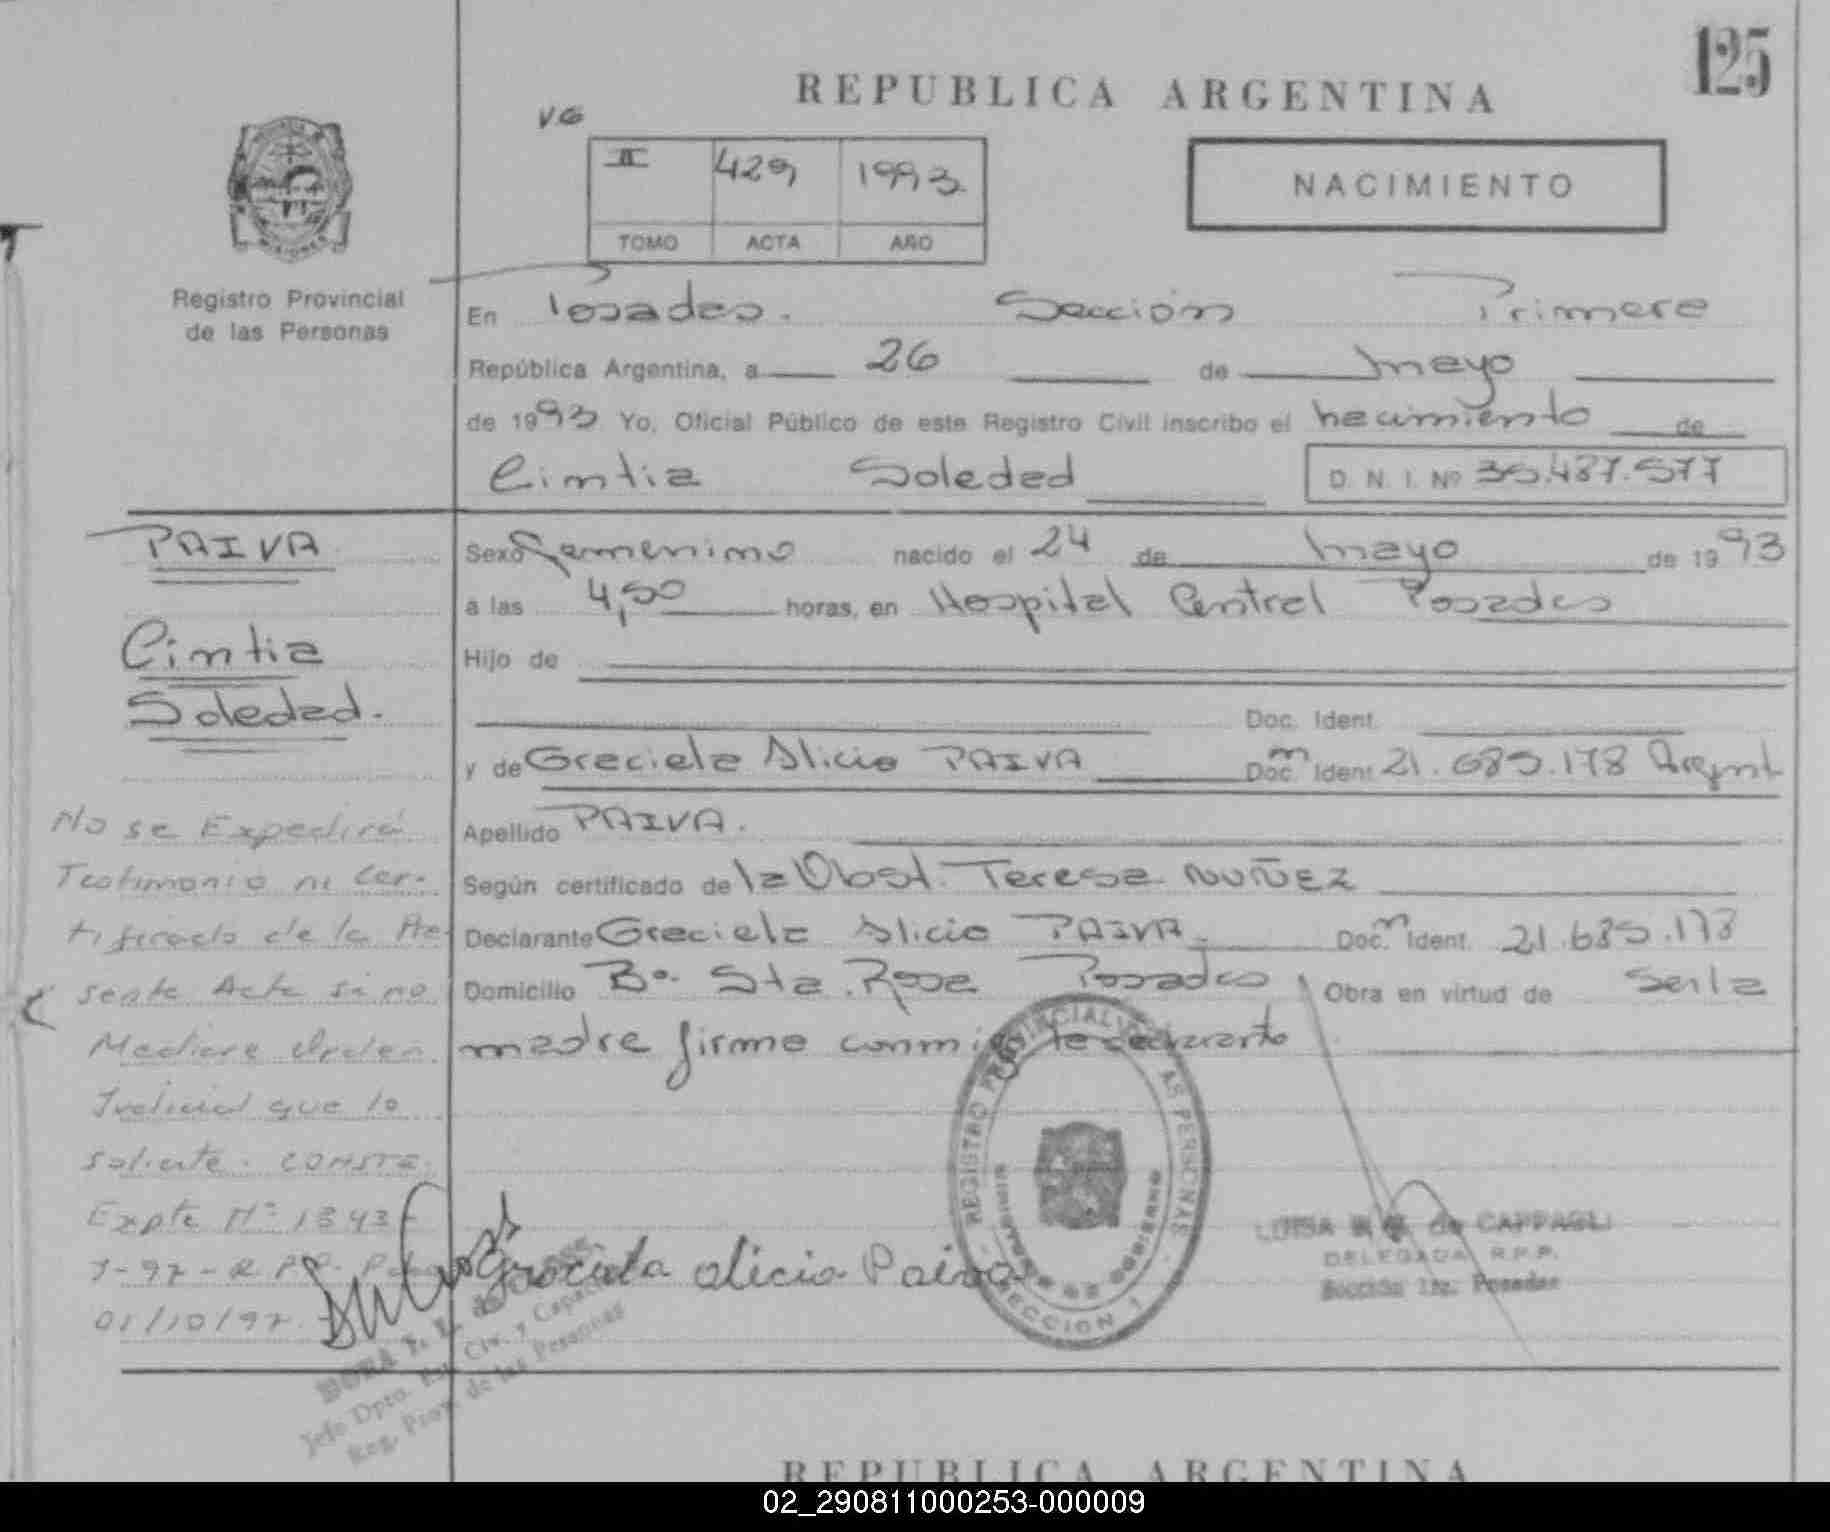 125
REPUBLICA ARGENTINA
VG
II 429 1993
TOMO ACTA AÑO
NACIMIENTO
MISIONES
Registro Provincial
de las Personas
En Posadas. Sección Primera
República Argentina, a 26 de mayo
de 1993 Yo, Oficial Público de este Registro Civil inscribo el nacimiento de
Cintia Soledad D. N. I. Nº 35.487.577
PAIVA
Cintia
Soledad.
Sexo Femenino nacido el 24 de mayo de 1993
a las 4,50 horas, en Hospital Central Posadas
Hijo de
Doc. Ident.
y de Graciela Alicia PAIVA Doc. m Ident. 21.685.178 Argent.
Apellido PAIVA.
Según certificado de la Obst. Teresa NUÑEZ
Declarante Graciela Alicia PAIVA Doc. m Ident. 21.685.178
Domicilio Bº. Sta. Rosa Posadas Obra en virtud de Ser la
madre firma conmigo la declarante
No se Expedirá
Testimonio ni Cer-
tificado de la Pre-
sente Acta si no
Mediare Orden
Judicial que lo
solicite. CONSTE.
Expte Nº 1343-
J-97-R.P.P. Pdas
01/10/97.
Graciela Alicia Paiva
REGISTRO PROVINCIAL DE LAS PERSONAS
MINISTERIO DE GOBIERNO
SECCION 1
LUISA de CAPPAGLI
DELEGADA R.P.P.
Sección 1ra. Posadas
Jefe Dpto. Est. Civ. y Capacidad
Reg. Prov. de las Personas
REPUBLICA ARGENTINA
02_290811000253-000009